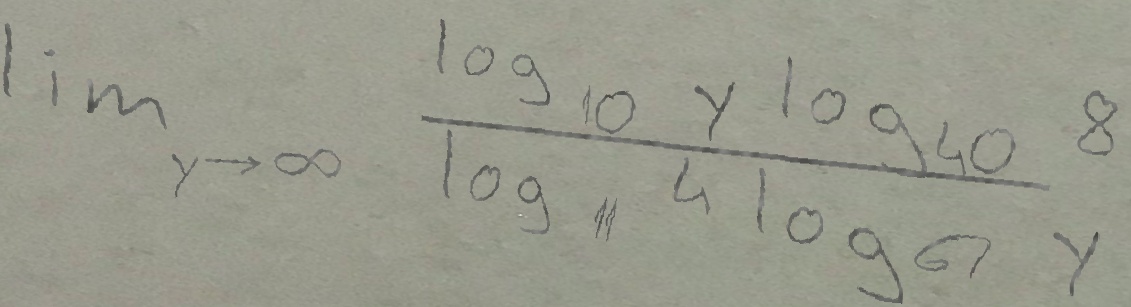 lim y→∞ log₁₀ y log₄₀ 8
log₁₁ 4 log₆₇ y